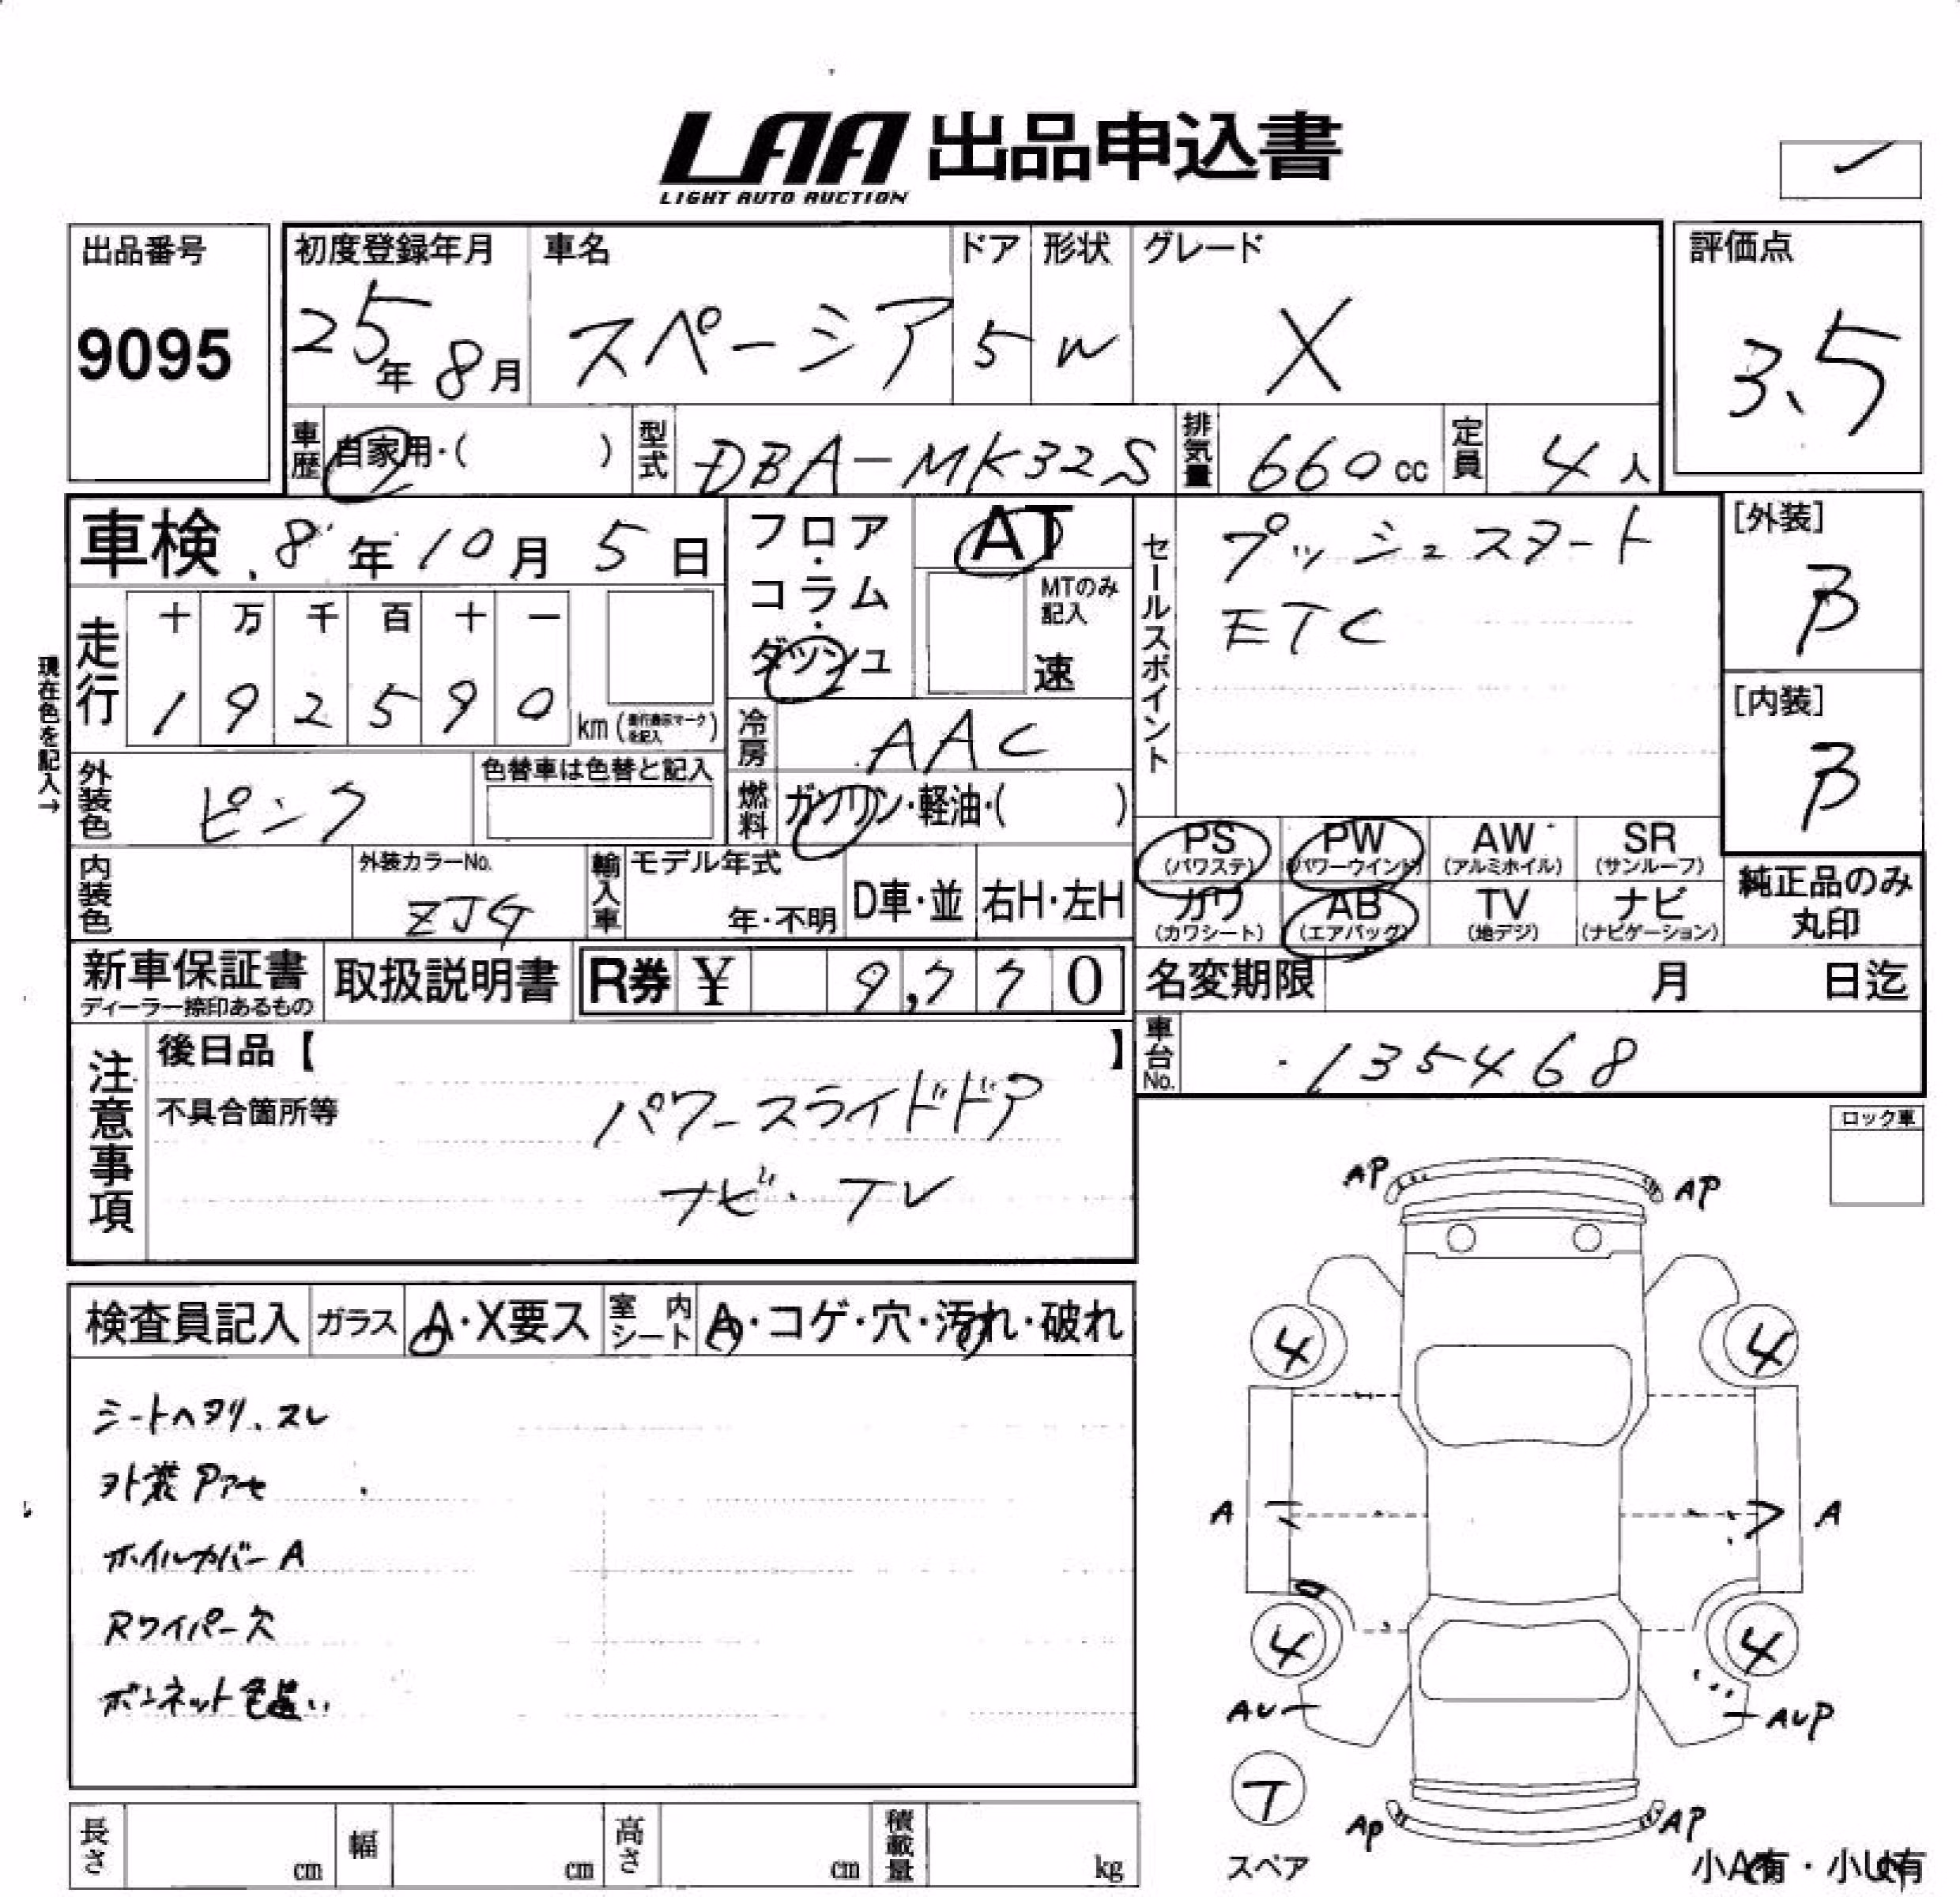 LAA 出品申込書
LIGHT AUTO AUCTION
出品番号
9095
初度登録年月
25年8月
車名
スペーシア
ドア
5
形状
W
グレード
X
評価点
3.5
車歴 自家用・( )
型式 DBA-MK32S
排気量 660cc
定員 4人
車検 8年10月5日
フロア・コラム・ダッシュ
AT
MTのみ記入
速
セールスポイント
プッシュスタート
ETC
[外装]
B
[内装]
B
現在色を記入→
走行
十 万 千 百 十 一
1 9 2 5 9 0 km (走行表示マークを記入)
冷房 AAC
外装色 ピンク
色替車は色替と記入
燃料 ガソリン・軽油・( )
PS (パワステ) PW (パワーウインド) AW (アルミホイル) SR (サンルーフ)
カワ (カワシート) AB (エアバッグ) TV (地デジ) ナビ (ナビゲーション)
純正品のみ丸印
内装色
外装カラーNo.
ZJG
輸入車
モデル年式
年・不明
D車・並
右H・左H
新車保証書
ディーラー捺印あるもの
取扱説明書
R券 ¥ 9,770
名変期限 月 日迄
車台No. 135468
注意事項
後日品【 】
不具合箇所等
パワースライドドア
ナビ・TV
ロック車
検査員記入 ガラス A・X要ス 室内シート A・コゲ・穴・汚れ・破れ
シートヘタリ、スレ
外装Pアセ
ホイルカバーA
Rワイパー欠
ボンネット色違い
AP AP
4 4
A A
4 4
AU AUP
T
スペア
AP AP
小A有・小U有
長さ cm 幅 cm 高さ cm 積載量 kg